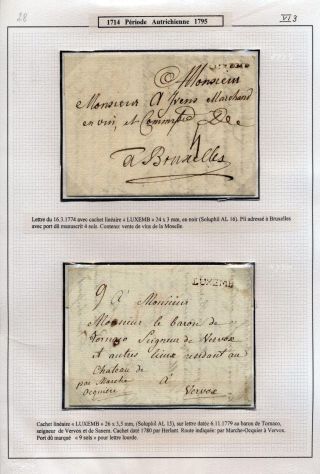 28
1714 Période Autrichienne 1795
VI 3
LUXEMB
Monsieur
Monsieur A Yvens Marchand
en vin, et Commiss De
4
a Bruxelles
Lettre du 16.3.1774 avec cachet linéaire « LUXEMB » 24 x 3 mm, en noir (Soluphil AL 16). Pli adressé à Bruxelles
avec port dû manuscrit 4 sols. Contenu: vente de vins de la Moselle.
LUXEMB
9 A Monsieur
Monsieur le baron de
Tornaco Seigneur de Vervox
et autres lieux residant au
Chateau de
par Marche
Ocquier
A
Vervox
Cachet linéaire « LUXEMB » 26 x 3,5 mm, (Soluphil AL 15), sur lettre datée 6.11.1779 au baron de Tornaco,
seigneur de Vervox et de Sanem. Cachet daté 1780 par Herlant. Route indiquée: par Marche-Ocquier à Vervox.
Port dû marqué « 9 sels » pour lettre lourde.